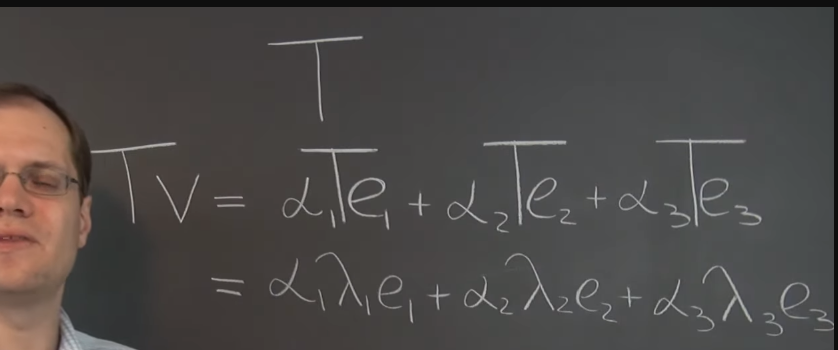 T
Tv = α₁Te₁ + α₂Te₂ + α₃Te₃
= α₁λ₁e₁ + α₂λ₂e₂ + α₃λ₃e₃